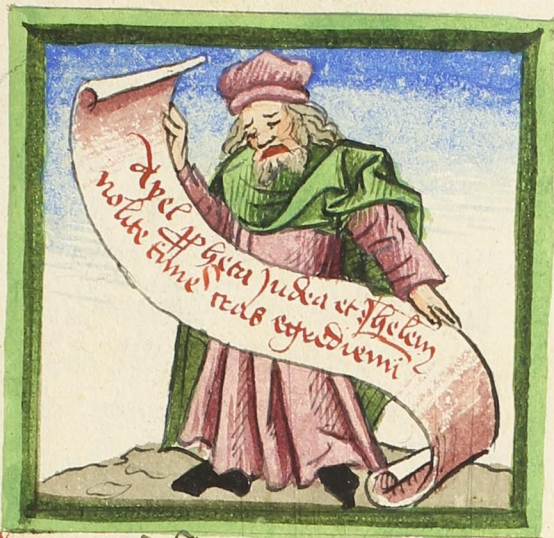 Ayel ꝓpheta Judea et Jherlem
nolite time' cras egrediemi'